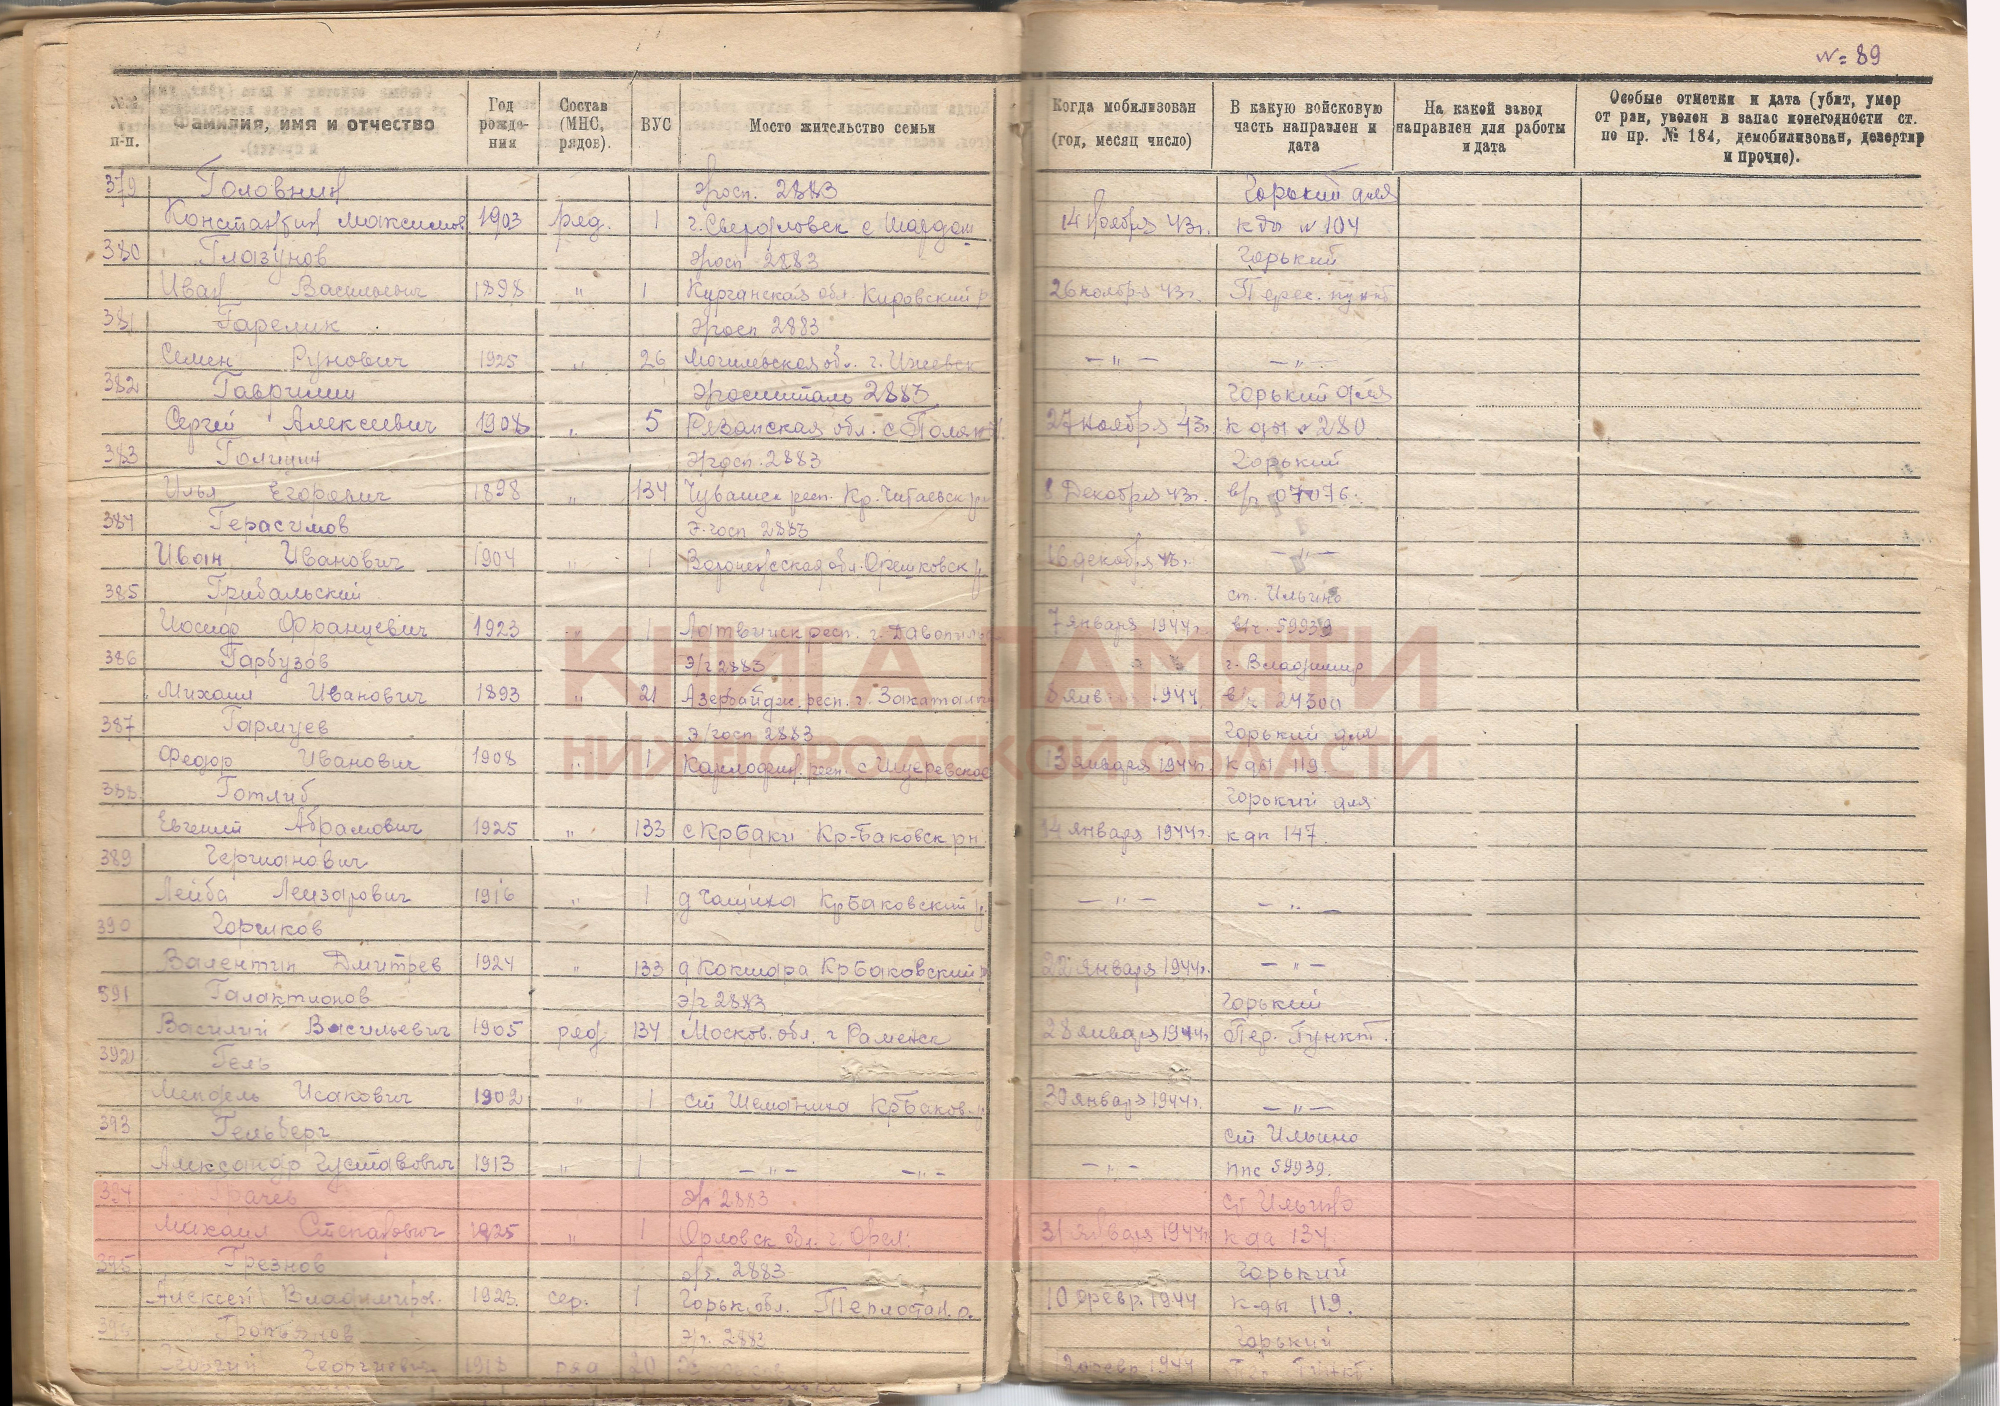 № 89
№№ п-п. Фамилия, имя и отчество Год рождения Состав (МНС, рядов). ВУС Место жительство семьи Когда мобилизован (год, месяц число) В какую войсковую часть направлен и дата На какой завод направлен для работы и дата Особые отметки и дата (убит, умер от ран, уволен в запас не­годности ст. по пр. № 184, демобилизован, дезертир и прочие).
379 Головнин Эгосп. 2883 Горький для
Константин Максимов 1903 ряд. 1 г. Свердловск с 14 ноября 43г. кды № 104
380 Глазунов Эгосп 2883 Горький
Иван Васильевич 1898 " 1 Курганская обл. Кировский р 26 ноября 43г. Перес. пункт
381 Гарелик Эгосп 2883
Семен Рунович 1925 " 26 Могилевская об. г. Ижевск — " — — " —
382 Гаврилин Эгоспиталь 2883 Горький для
Сергей Алексеевич 1908 " 5 Рязанская обл. с Поляны 27 ноября 43г. кды № 280
383 Голицин Эгосп. 2883 Горький
Илья Егорович 1898 " 134 Чувашск респ. Кр. Читаевск рн 8 Декабря 43г. в/ч 07076.
384 Герасимов Э.госп 2883
Иван Иванович 1904 " 1 Воронежская обл. 16 декабря 43г. — " —
385 Грибальский ст. Ильино
Иосиф Францевич 1923 " 1 Латвийск респ. г. 7 января 1944г. в/ч. 59939
386 Гарбузов Э/г 2883 г. Владимир
Михаил Иванович 1893 " 21 Азербайдж. респ. г. Закаталы 8 янв 1944 в/ч 24300
387 Гармуев Э/госп 2883 Горький для
Федор Иванович 1908 " 1 13 января 1944г. кды 119.
388 Готлиб Горький для
Евгений Абрамович 1925 " 133 с КрБаки Кр-Баковск рн. 14 января 1944г. к дп 147.
389 Герцианович
Лейба Лейзарович 1916 " 1 д Чащиха КрБаковский р. — " — — " —
390 Горшков
Валентин Дмитрев 1924 " 133 д Кокшара КрБаковский рн 22 января 1944г. — " —
391 Галактионов Э/г 2883 Горький
Василий Васильевич 1905 ряд. 134 Москов. обл. г Раменск 28 января 1944г. Пер. Пункт.
392 Гель
Мендель Исакович 1902 " 1 ст Шеманиха КрБаков. р. 30 января 1944г. — " —
393 Гельберг ст Ильино
Александр Густавович 1913 " 1 — " — — " — — " — ппс 59939.
394 Грачев Э/г 2883 ст Ильино
Михаил Степанович 1925 " 1 Орловск обл. г. Орел. 31 января 1944г. к да 134
395 Грезнов э/г. 2883 Горький
Алексей Владимиров. 1923 сер. 1 Горьк. обл. Теплостан. р. 10 февр. 1944 к-ды 119.
КНИГА ПАМЯТИ
НИЖЕГОРОДСКОЙ ОБЛАСТИ
Э/г. 2883 Горький
Георгий Георгиевич 1913 ряд 20 12 февр 1944 Пер. Пункт.